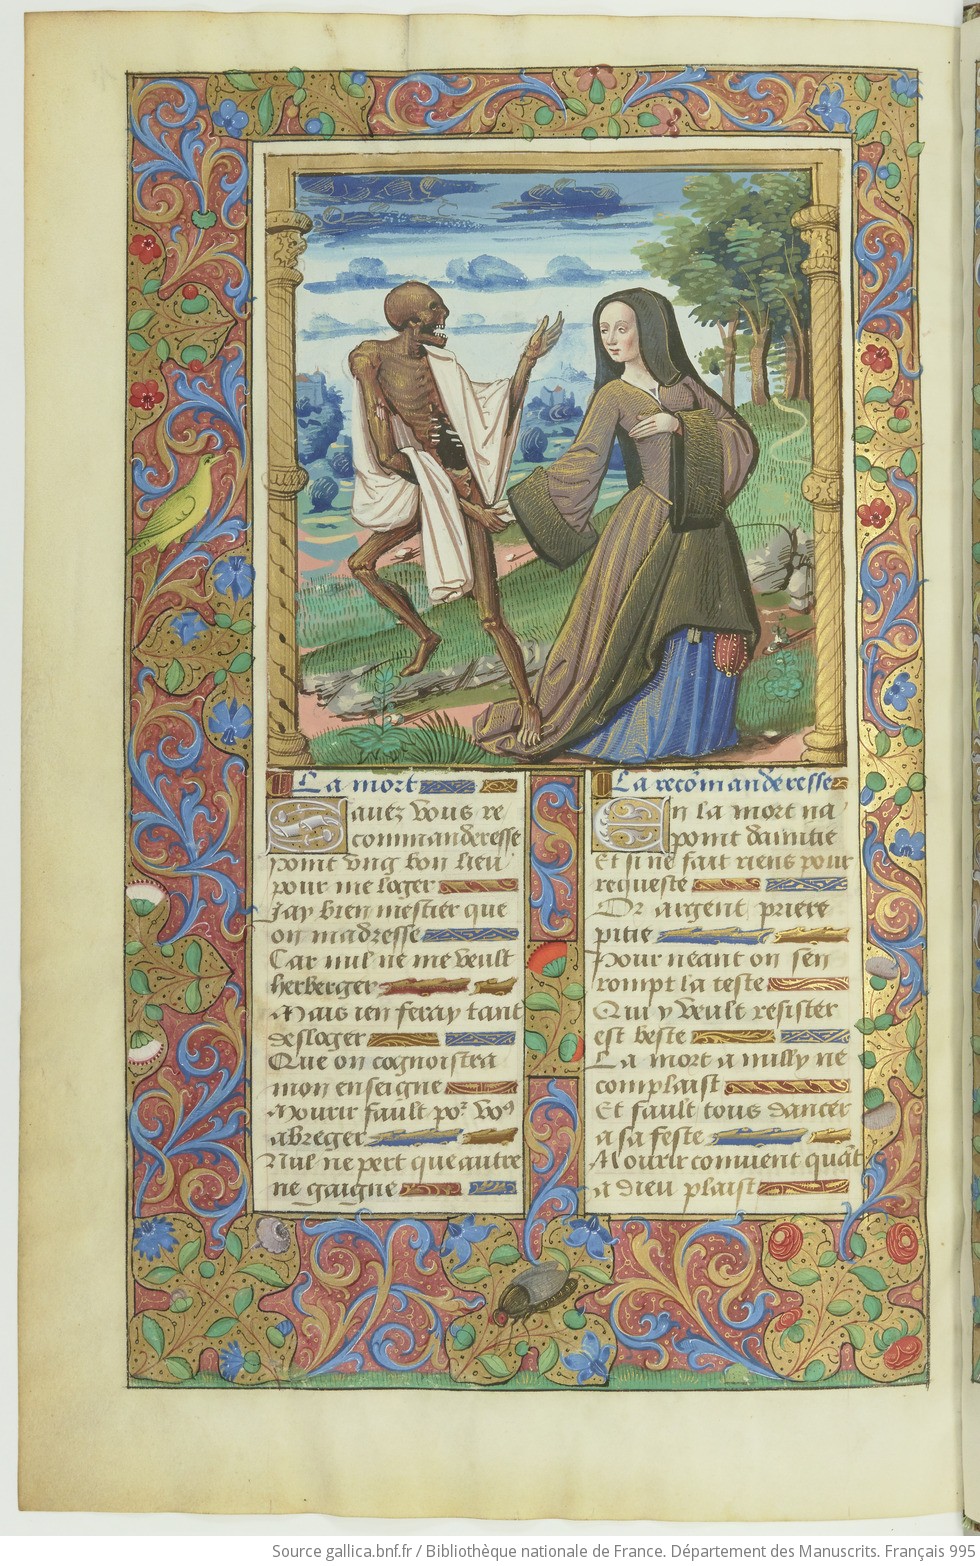 La mort
Sauez vous re
commanderesse
point vng bon lieu
pour me loger
Jay bien mestier que
on madresse
Car nul ne me veult
herberger
Mais ien feray tant
desloger
Que on cognoistra
mon enseigne
Mourir fault poᷣ voꝰ
abreger
Nul ne pert que autre
ne gaigne
La recōmanderesse
En la mort na
point damitie
Et si ne fait riens pour
requeste
Or argent priere
pitie
Pour neant on sen
rompt la teste
Qui y veult resister
est beste
La mort a nully ne
complaist
Et fault tous dancer
a sa feste
Mourir conuient quāt
a dieu plaist
Source gallica.bnf.fr / Bibliothèque nationale de France. Département des Manuscrits. Français 995